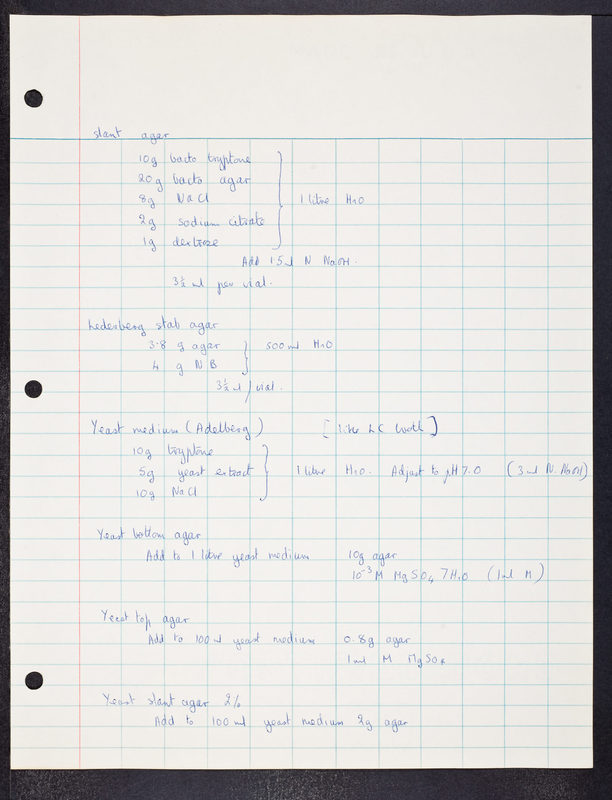 slant agar
10g bacto tryptone
20g bacto agar
8g NaCl 1 litre H2O
2g sodium citrate
1g dextrose
Add 1.5ml N NaOH.
3½ ml per vial.
Lederberg stab agar
3.8 g agar 500ml H2O
4 g NB
3½ ml/vial.
Yeast medium (Adelberg) [like LC broth]
10g tryptone
5g yeast extract 1 litre H2O. Adjust to pH 7.0 (3ml N. NaOH)
10g NaCl
Yeast bottom agar
Add to 1 litre yeast medium 10g agar
10⁻³M MgSO4 7H2O (1ml M)
Yeast top agar
Add to 100ml yeast medium 0.8g agar
1ml M MgSO4
Yeast slant agar 2%
Add to 100ml yeast medium 2g agar